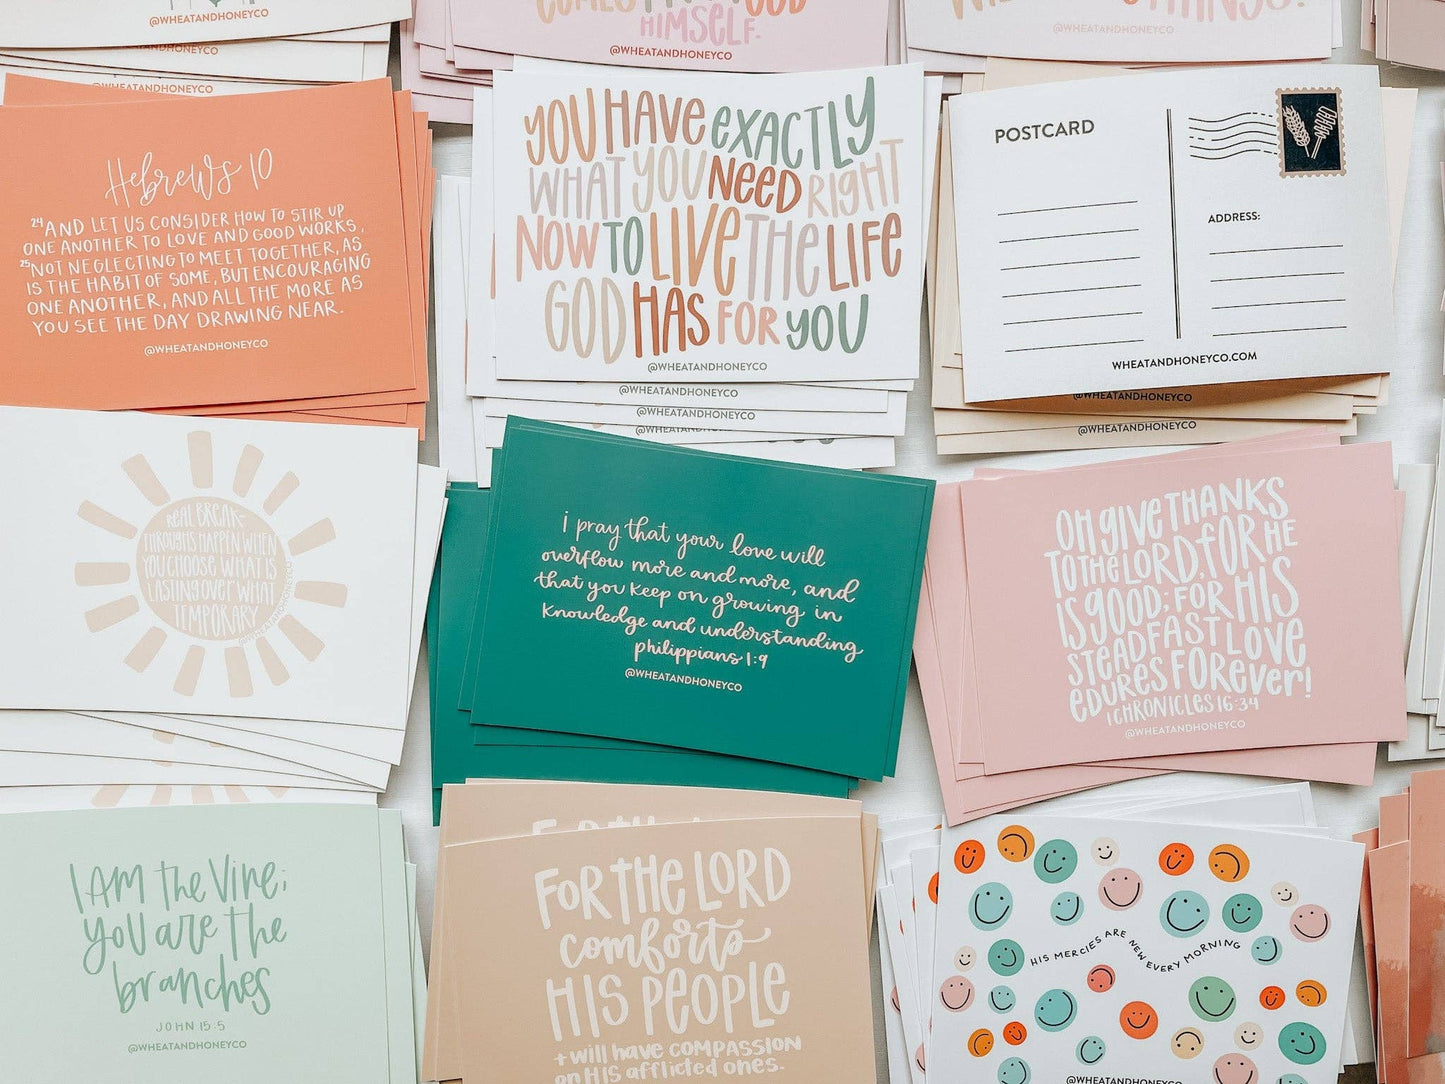 @WHEATANDHONEYCO
@WHEATANDHONEYCO
GOD
HIMSELF.
@WHEATANDHONEYCO
THINGS!
@WHEATANDHONEYCO
Hebrews 10
24 AND LET US CONSIDER HOW TO STIR UP
ONE ANOTHER TO LOVE AND GOOD WORKS,
25 NOT NEGLECTING TO MEET TOGETHER, AS
IS THE HABIT OF SOME, BUT ENCOURAGING
ONE ANOTHER, AND ALL THE MORE AS
YOU SEE THE DAY DRAWING NEAR.
@WHEATANDHONEYCO
YOU HAVE EXACTLY
WHAT YOU NEED RIGHT
NOW TO LIVE THE LIFE
GOD HAS FOR YOU
@WHEATANDHONEYCO
@WHEATANDHONEYCO
@WHEATANDHONEYCO
@WHEATANDHONEYCO
POSTCARD
ADDRESS:
WHEATANDHONEYCO.COM
@WHEATANDHONEYCO
@WHEATANDHONEYCO
REAL BREAK-
THROUGHS HAPPEN WHEN
YOU CHOOSE WHAT IS
LASTING OVER WHAT IS
TEMPORARY
@WHEATANDHONEYCO
i pray that your love will
overflow more and more, and
that you keep on growing in
knowledge and understanding
philippians 1:9
@WHEATANDHONEYCO
OH GIVE THANKS
TO THE LORD, FOR HE
IS GOOD; FOR HIS
STEADFAST LOVE
EDURES FOREVER!
1 CHRONICLES 16:34
@WHEATANDHONEYCO
I AM the Vine;
you are the
branches
JOHN 15:5
@WHEATANDHONEYCO
FOR THE LORD
comforts
HIS PEOPLE
+ will have COMPASSION
on HIS afflicted ones.
HIS MERCIES ARE NEW EVERY MORNING
@WHEATANDHONEYCO